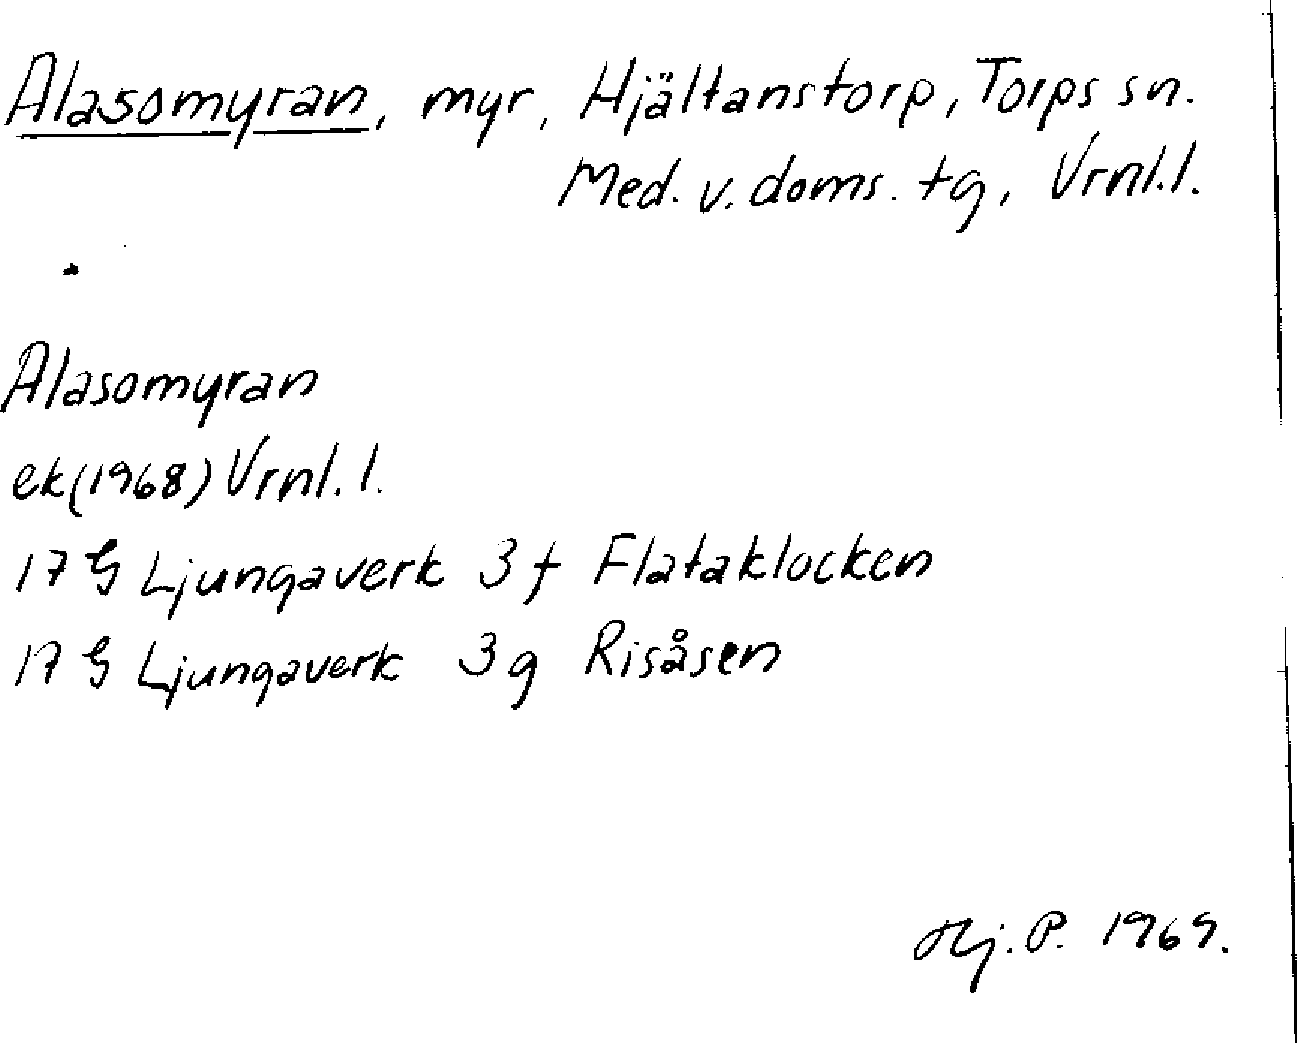 Alasomyran, myr, Hjältanstorp, Torps sn.
Med. v. doms. tg, Vrnl.l.
Alasomyran
ek(1968) Vrnl. l.
17 G Ljungaverk 3 f Flataklocken
17 G Ljungaverk 3g Risåsen
Hj. P. 1969.